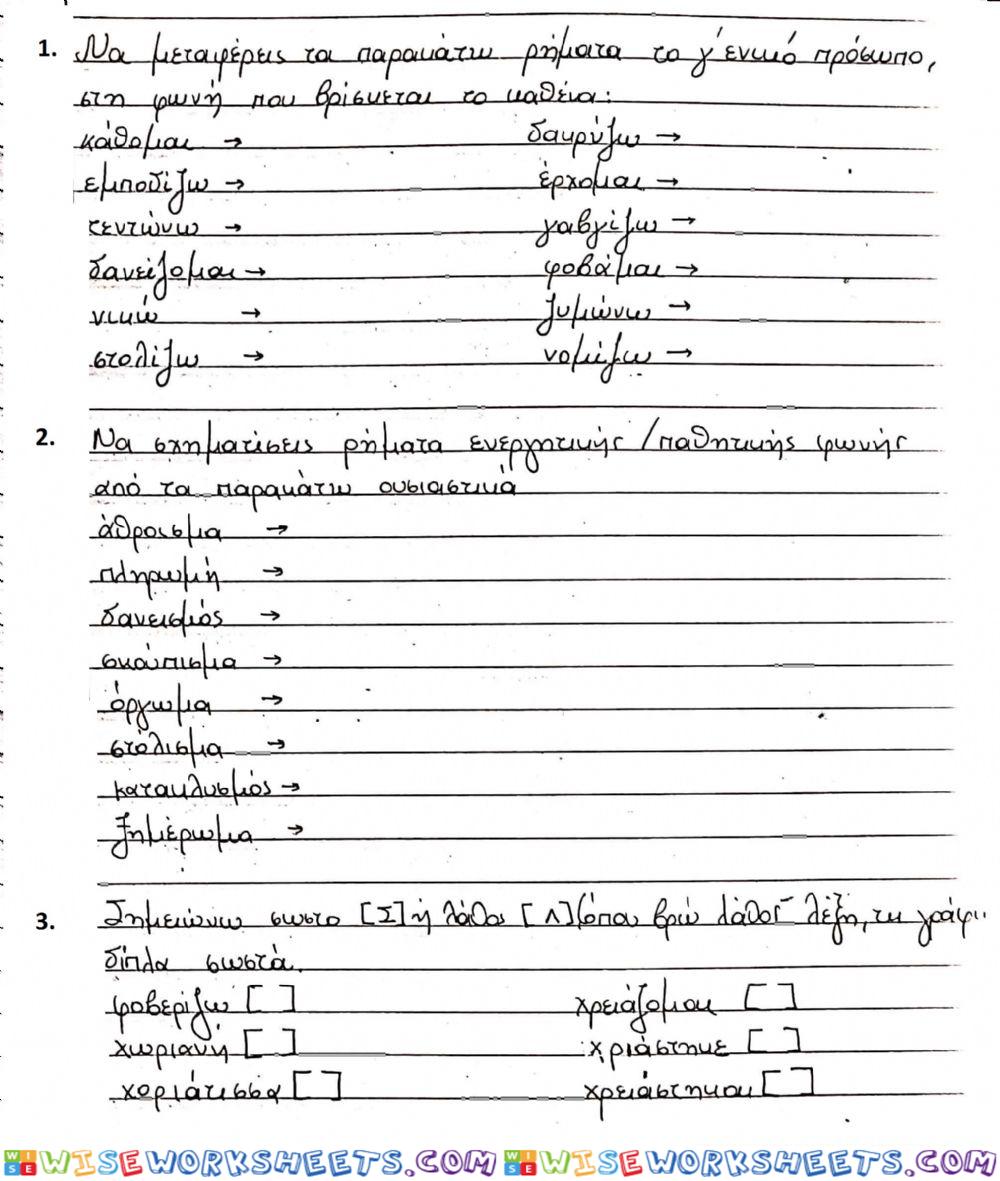 1. Να μεταφέρεις τα παρακάτω ρήματα το γ΄ενικό πρόσωπο,
στη φωνή που βρίσκεται το καθένα:
κάθομαι → δακρύζω →
εμποδίζω → έρχομαι →
κεντώνω → γαβγίζω →
δανείζομαι → φοβάμαι →
νικώ → ζυμώνω →
στολίζω → νομίζω →
2. Να σχηματίσεις ρήματα ενεργητικής / παθητικής φωνής
από τα παρακάτω ουσιαστικά
άθροισμα →
πληρωμή →
δανεισμός →
σκούπισμα →
όργωμα →
στόλισμα →
κατακλυσμός →
ξημέρωμα →
3. Σημειώνω σωστο [Σ] ή λάθος [Λ] (όπου βρω λάθος λέξη, τη γράφω
δίπλα σωστά.
φοβερίζω [ ] χρειάζομαι [ ]
χωριανή [ ] χριάστηκε [ ]
χοριάτισσα [ ] χρειάστηκαι [ ]
WISEWORKSHEETS.COM WISEWORKSHEETS.COM